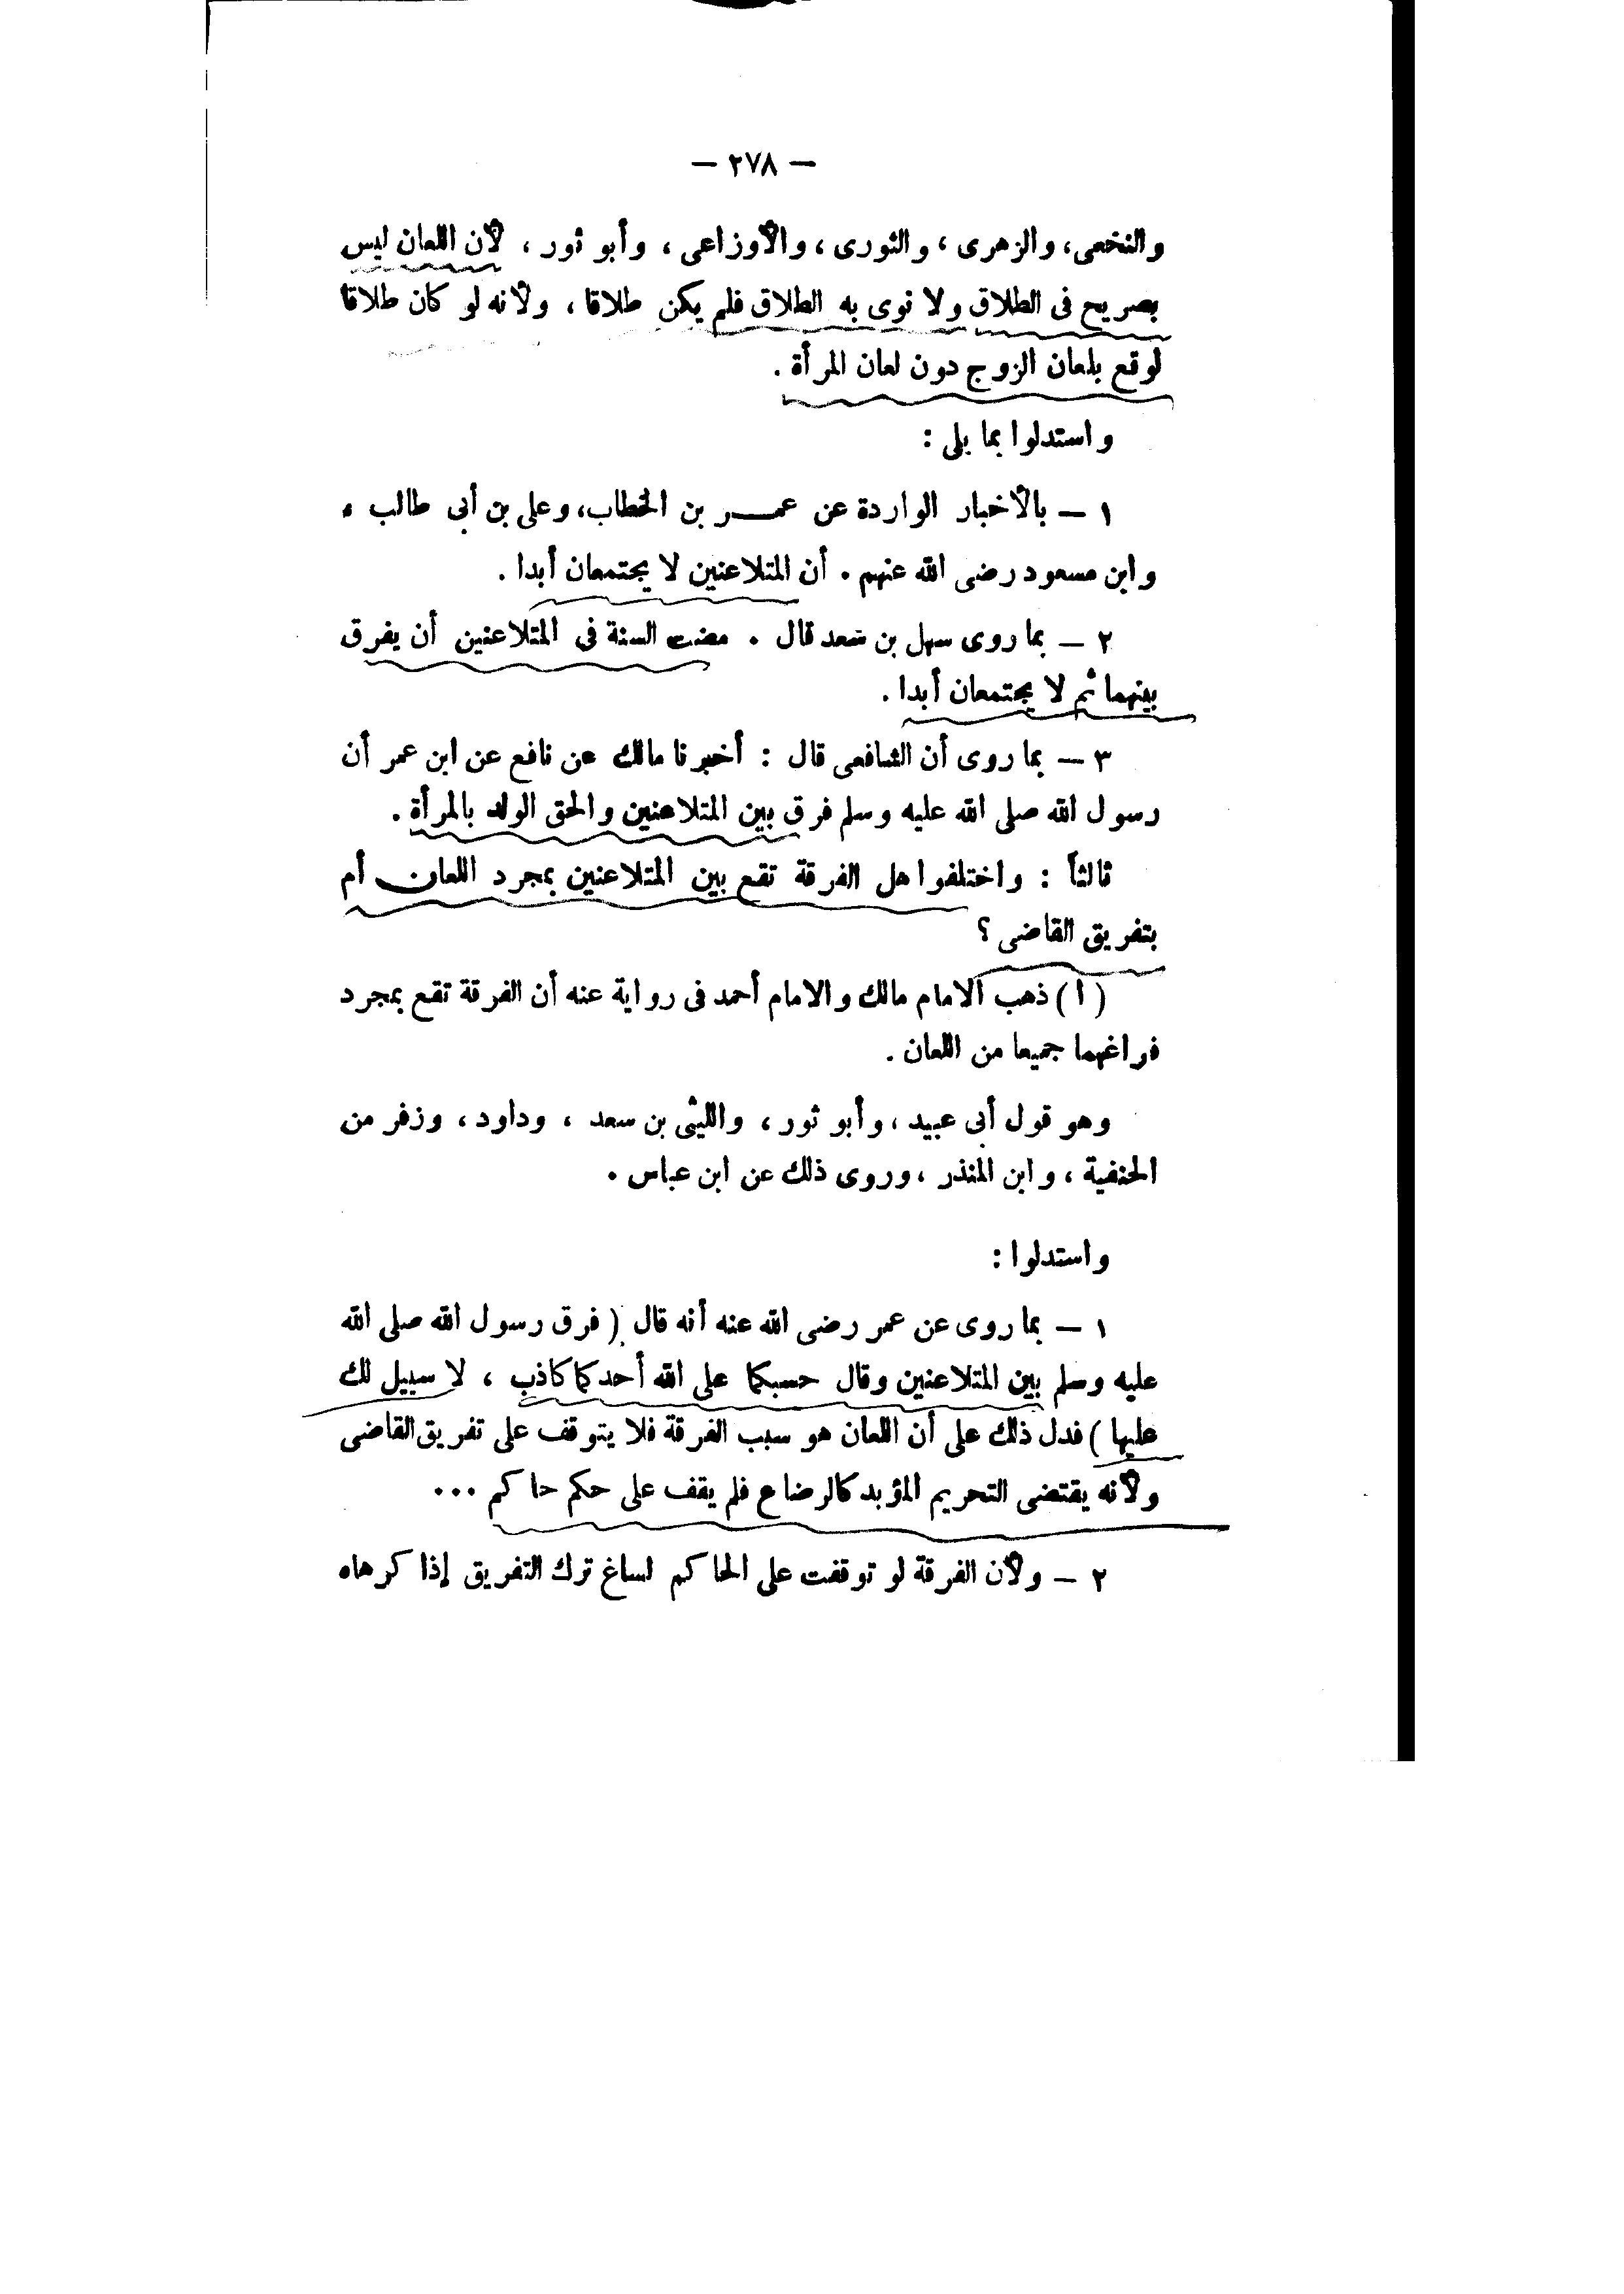 — ٢٧٨ —
والنخعى، والزهرى، والثورى، والأوزاعى، وأبو ثور، لأن اللعان ليس
بصريح فى الطلاق ولا نوى به الطلاق فلم يكن طلاقا، ولأنه لو كان طلاقا
لوقع بلعان الزوج دون لعان المرأة .
واستدلوا بما يلى :
١ — بالأخبار الواردة عن عمر بن الخطاب، وعلى بن أبى طالب ،
وابن مسعود رضى الله عنهم . أن المتلاعنين لا يجتمعان أبدا .
٢ — بما روى سهل بن سعد قال . مضت السنة فى المتلاعنين أن يفرق
بينهما ثم لا يجتمعان أبدا .
٣ — بما روى أن الشافعى قال : أخبرنا مالك عن نافع عن ابن عمر أن
رسول الله صلى الله عليه وسلم فرق بين المتلاعنين والحق الولد بالمرأة .
ثالثاً : واختلفوا هل الفرقة تقع بين المتلاعنين بمجرد اللعان أم
بتفريق القاضى ؟
(ا) ذهب الامام مالك والامام أحمد فى رواية عنه أن الفرقة تقع بمجرد
فراغهما جميعا من اللعان .
وهو قول أبى عبيد، وأبو ثور، والليثى بن سعد ، وداود، وزفر من
الحنفية ، وابن المنذر ، وروى ذلك عن ابن عباس .
واستدلوا :
١ — بما روى عن عمر رضى الله عنه أنه قال ( فرق رسول الله صلى الله
عليه وسلم بين المتلاعنين وقال حسبكما على الله أحدكما كاذب ، لا سبيل لك
عليها ) فدل ذلك على أن اللعان هو سبب الفرقة فلا يتوقف على تفريق القاضى
ولأنه يقتضى التحريم المؤبد كالرضاع فلم يقف على حكم حاكم ...
٢ — ولأن الفرقة لو توقفت على الحاكم لساغ ترك التفريق إذا كرهاه